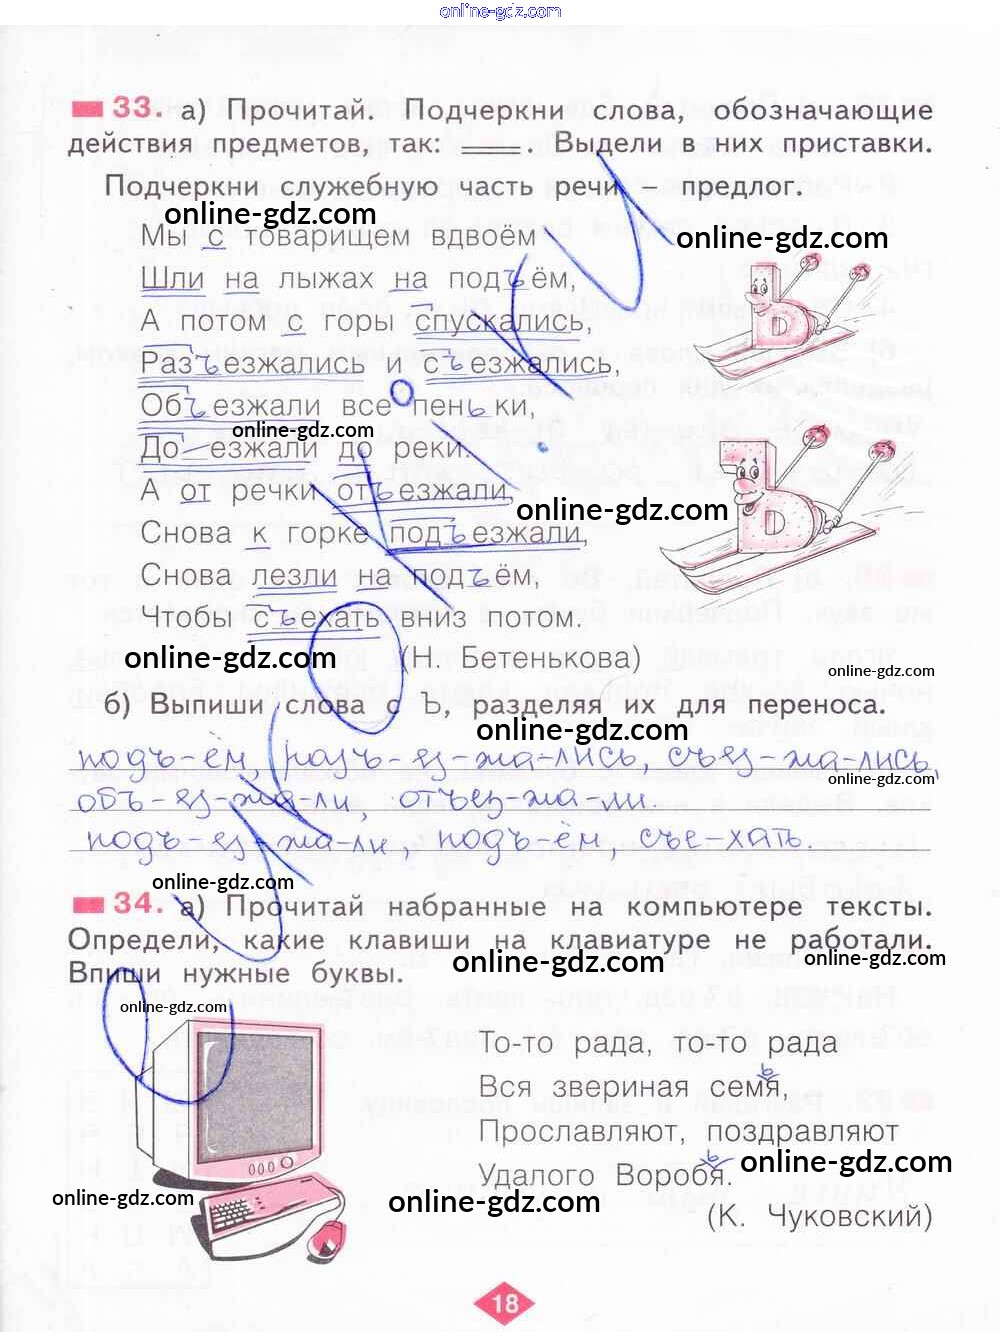 online-gdz.com
33. а) Прочитай. Подчеркни слова, обозначающие
действия предметов, так: ____. Выдели в них приставки.
Подчеркни служебную часть речи – предлог.
online-gdz.com
Мы с товарищем вдвоём
online-gdz.com
Шли на лыжах на подъём,
А потом с горы спускались,
Разъезжались и съезжались,
Объезжали все пеньки,
online-gdz.com
online-gdz.com
Доезжали до реки.
А от речки отъезжали,
online-gdz.com
Снова к горке подъезжали,
Снова лезли на подъём,
Чтобы съехать вниз потом.
online-gdz.com
(Н. Бетенькова)
online-gdz.com
б) Выпиши слова с Ъ, разделяя их для переноса.
online-gdz.com
подъ-ём, разъ-ез-жа-лись, съез-жа-лись,
online-gdz.com
объ-ез-жа-ли, отъез-жа-ли.
подъ-ез-жа-ли, подъ-ём, съе-хать.
online-gdz.com
34. а) Прочитай набранные на компьютере тексты.
Определи, какие клавиши на клавиатуре не работали.
online-gdz.com
online-gdz.com
Впиши нужные буквы.
online-gdz.com
То-то рада, то-то рада
Вся звериная семья,
Прославляют, поздравляют
online-gdz.com
Удалого Воробья.
online-gdz.com
online-gdz.com
(К. Чуковский)
18